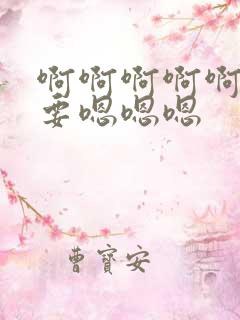 啊啊啊啊啊
要嗯嗯嗯
曹寳安